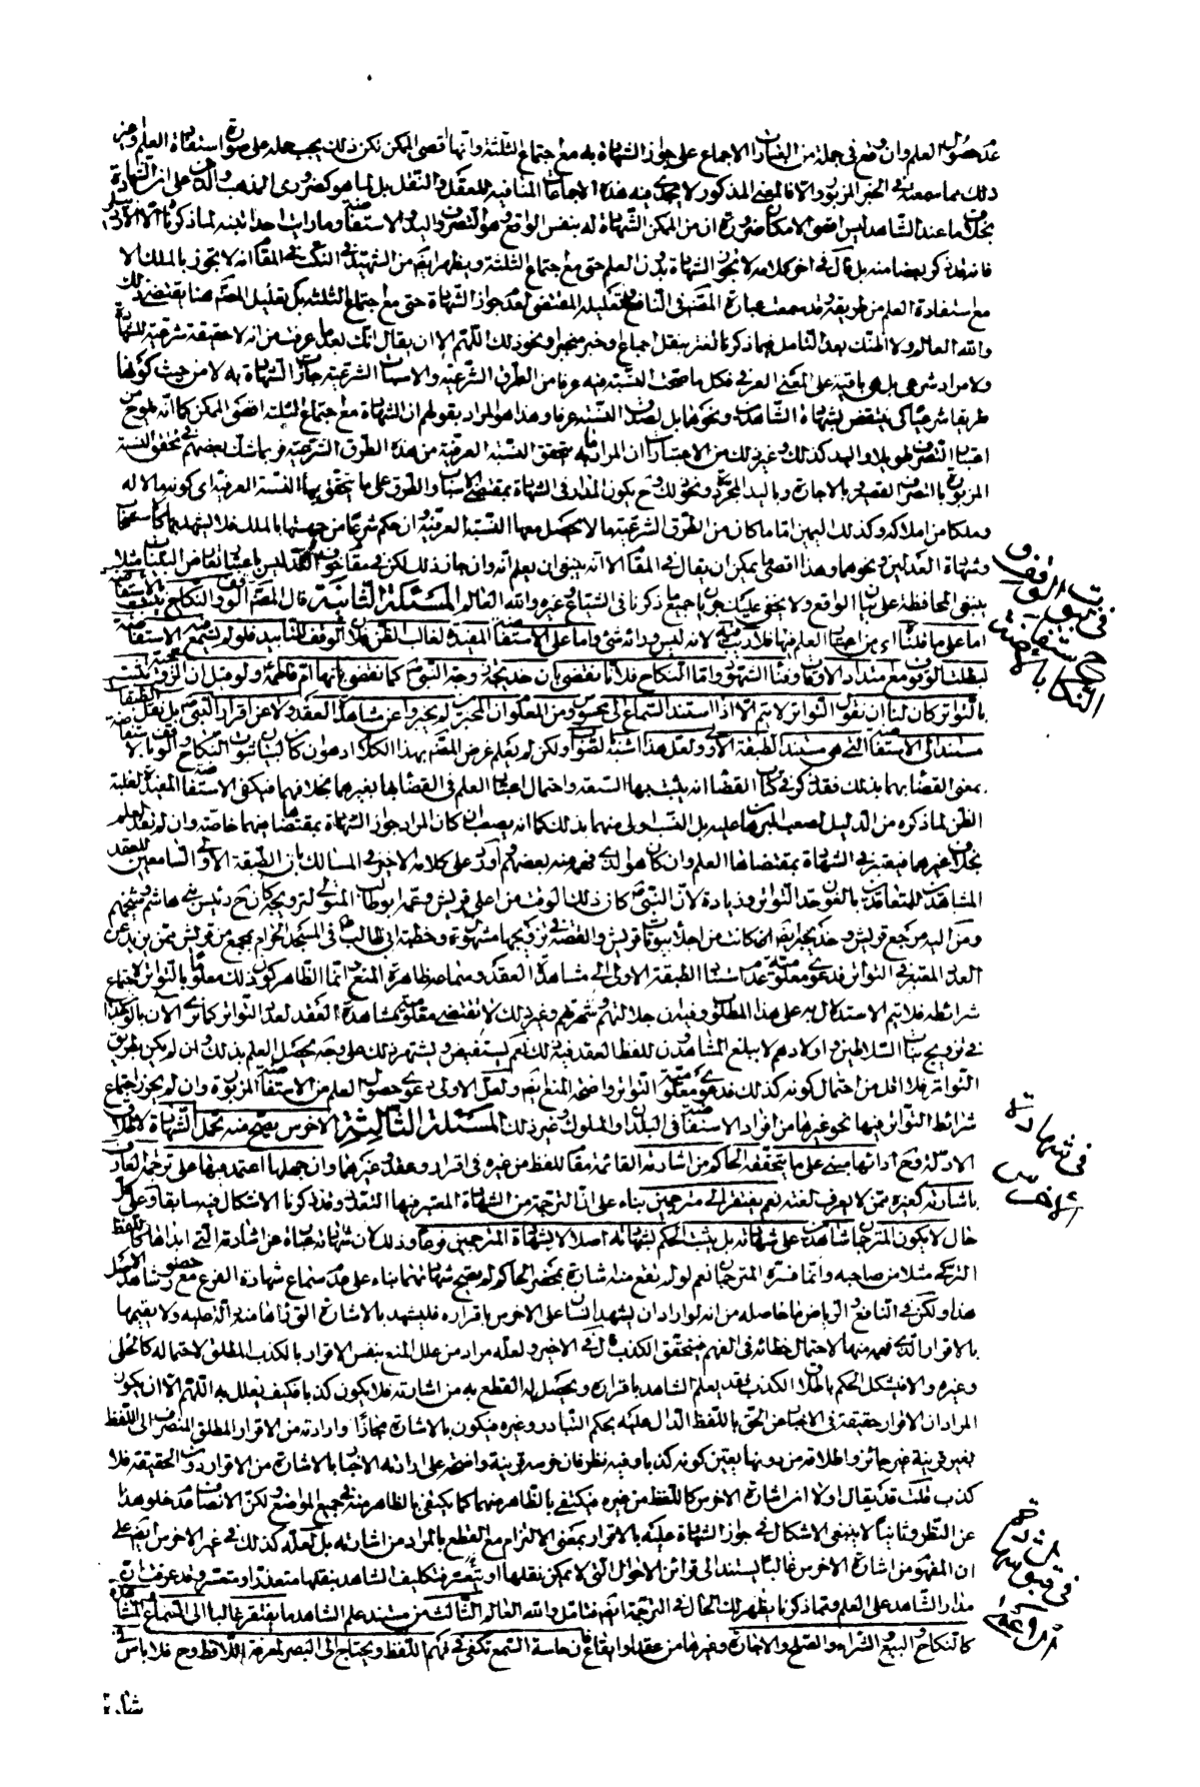 عند حصول العلم وان وقع فى جملة من العبارات الاجماع على جواز الشهادة به مع اجتماع الثلثة وانها اقصى الممكن لكن ذلك يجب حمله على صورة استفادة العلم
ذلك مما سمعته فى الخبر المزبور والا فالمعنى المذكور لا يجدى فيه هذه الاجماعات المنافية للعقل والنقل بل لما هو كضرورى المذهب
بخلاف ما عند الشاهد ليس اقصى الامكان ضرورة ان من الممكن الشهادة له بنفس الواقع وهو التصرف واليد والاستفاضة وما رايت احدا تنبه لما ذكرناه الا
فانه قد ذكر بعضا منه بل قال فى اخر كلامه لا تجوز الشهادة بدون العلم حتى مع اجتماع الثلثة ويظهر ايضا من الشهيد فى
مع استفادة العلم من طريقه وقد سمعت عبارة المقنعة فى النافع
والله العالم ولا اظنك بعد التامل فيما ذكرنا تغتر بنقل اجماع وخبر منجبر ونحو ذلك اللهم الا ان يقال انك لعل عرفت من انه لا حقيقة شرعية للشهادة
ولا مراد شرعى بل هى باقية على المعنى العرفى فكل ما تحققت النسبة فيه عرفا من الطرق الشرعية والاسباب الشرعية جازت الشهادة به لا من حيث كونها
طريقا شرعيا كى ينتقض بشهادة الشاهدين ونحوها بل لصدق النسبة عرفا وهذا هو المراد بقولهم ان الشهادة مع اجتماع الثلثة اقصى الممكن كما انه
اعتبار التصرف طويلا واليد كذلك وغير ذلك من الاعتبارات ان المراد ما به تتحقق النسبة العرفية من هذه الطرق الشرعية فربما شك بعضهم فى تحقق النسبة
المزبورة بالتصرف القصير وبالاجارة وباليد المجردة ونحو ذلك وح يكون المدار فى الشهادة بمقتضى الاسباب والطرق على ما تتحقق بها النسبة العرفية اى كونه مالا له
وملكا من املاكه وكذلك اليمين اما ما كان من الطرق الشرعية مما لا تحصل معها النسبة العرفية وان حكم شرعا من جهتها بالملك فلا تشهد بها كالاستصحاب
وشهادة العدلين ونحوهما وهذا اقصى ما يمكن ان يقال فى المقام الا انه ينبغى ان يعلم انه وان جاز ذلك لكن فى مقام
ينبغى المحافظة على بيان الواقع ولا يخفى عليك جريان جميع ما ذكرنا فى الشياع وغيره والله العالم المسئلة الثانية قال المصنف الوقف والنكاح يثبت بالاستفاضة
اما على ما قلناه من اعتبار العلم فيها فلا ريب فيه لانه ليس وراءه شىء واما على الاستفاضة المفيدة لغالب الظن فلان الوقف للتابيد فلو لم تسمع فيه الاستفاضة
لبطلت الوقوف مع امتداد الاوقات وفناء الشهود واما النكاح فلانا نقضى بان خديجة زوجة النبى ص كما نقضى بانها ام فاطمة ولو قيل ان الزوجية تثبت
بالتواتر كان لنا ان نقول التواتر لا يثمر الا اذا استند السماع الى محسوس ومن المعلوم ان المخبرين لم يخبروا عن مشاهدة العقد ولا عن اقرار النبى ص بل نقل الطبقات
مستند الى الاستفاضة التى هى مستند الطبقة الاولى ولعل هذا اشبه بالصواب ولكن لم يعلم غرض المصنف بهذا الكلام
بمعنى القضاء بهما بذلك فقد ذكر فى كتاب القضاء انه يثبت بها السبعة واحتمال اعتبار العلم فى القضاء بها بغيرهما بخلافهما فيكفى الاستفاضة المفيدة لغلبة
الظن لما ذكره من الدليل يصعب البرهان عليه بل النسب اولى منهما بذلك كما انه يصعب ان كان المراد جواز الشهادة بمقتضاها فيهما خاصة وان لم تفد العلم
بخلاف غيرهما فيعتبر فى الشهادة بمقتضاها العلم وان كان هو الذى فهمه منه بعضهم واورد على كلامه الاخير فى المسالك بان الطبقة الاولى السامعين للعقد
المشاهدين للمتعاقدين بالغون حد التواتر وزيادة لان النبى ص كان ذلك الوقت من اعلى قريش وعمه ابوطالب المتولى لتزويجه كان ح رئيس بنى هاشم وشيخهم
ومن اليه مرجع قريش وخديجة ايضا كانت من اجلاء بيوتات قريش والقصة فى تزويجها مشهورة وخطبة ابى طالب فى المسجد الحرام بمجمع من قريش ممن يزيد عن
العدد المعتبر فى التواتر فدعوى معلومية عدم استناد الطبقة الاولى الى مشاهدة العقد وسماعه ظاهرة المنع وانما الظاهر كون ذلك معلوما بالتواتر لاجتماع
شرائطه فلا يتم الاستدلال به على هذا المطلوب وفيه ان جلالتهم وشهرتهم وغير ذلك لا تقتضى معلومية مشاهدة العقد لعدد التواتر كما نرى الآن بالوجدان
فى تزويج بنات السلاطين واولادهم لا يبلغ المشاهدون للفظ العقد فيه ذلك نعم يستفيض ويشتهر ذلك على وجه يحصل العلم بذلك وان لم يكن بطريق
التواتر فلا اقل من احتمال كونه كذلك فدعوى معلومية التواتر واضحة المنع ايضا ولعل الاولى دعوى حصول العلم من الاستفاضة المزبورة وان لم يحرز اجتماع
شرائط التواتر فيها نحو غيرها من افراد الاستفاضة فى البلدان والملوك وغير ذلك المسئلة الثالثة الاخرس يصح منه تحمل الشهادة لاطلاق
الادلة وح اداؤها مبنى على ما يتحققه الحاكم من اشارته القائمة مقام اللفظ من غيره فى اقرار وعقد وغيرهما وان جهلها اعتمد فيها على ترجمة العارف
باشارته كغيره ممن لا يعرف لغته نعم يفتقر الى مترجمين بناء على ان الترجمة من الشهادة المعتبر فيها التعدد وقد ذكرنا الاشكال فيه سابقا وعلى كل
حال لا يكون المترجمان شاهدين على شهادته بل يثبت الحكم بشهادته اصلا لا بشهادة المترجمين فرعا وذلك لان شهادتهما هى عبارة عن اشارته التى ابداها كاللفظ
التركى مثلا من صاحبه وانما فسره المترجمان نعم لو لم تقع منه اشارة بمحضر الحاكم لم يصح شهادتهما بناء على عدم سماع شهادة الفرع مع حضور شاهد الاصل
هذا ولكن فى النافع والرياض ما حاصله من انه لو اراد ان يشهد انسان على الاخرس باقراره فليشهد بالاشارة التى راها منه الدالة عليه ولا يقيمها
بالاقرار الذى فهمه منها لاحتمال خطائه فى الفهم فيتحقق الكذب قال فى الاخير ولعله مراد من علل المنع بنفس الاقرار بالكذب المطلق لاحتماله كالحلى
وغيره والا فيشكل الحكم باطلاق الكذب فقد يعلم الشاهد باقراره ويحصل له القطع به من اشارته فلا يكون كذبا فكيف يعلل به اللهم الا ان يكون
المراد ان الاقرار حقيقة فى الاخبار عن الحق باللفظ الدال عليه بحكم التبادر وغيره فيكون بالاشارة مجازا وارادته من الاقرار المطلق المنصرف الى اللفظ
بغير قرينة غير جائز واطلاقه من دونها يعين كونه كذبا وفيه نظر فان خرسه قرينة واضحة على ارادته الاخبار بالاشارة من الاقرار دون الحقيقة فلا
كذب قلت قد يقال اولا ان اشارة الاخرس كاللفظ من غيره فيكتفى بالظاهر منهما كما يكتفى بالظاهر منه فى جميع المواضع ولكن الانصاف عدم خلو هذا
عن النظر وثانيا لا ينبغى الاشكال فى جواز الشهادة عليه بالاقرار بمعنى الالتزام مع القطع بالمراد من اشارته بل لعله كذلك فى غير الاخرس ايضا على
ان المفهوم من اشارة الاخرس غالبا يستند الى قرائن الاحوال التى لا يمكن نقلها او يتعسر فتكليف الشاهد بنقلها متعذر او متعسر وقد عرفت ان
مدار الشاهد على العلم ومما ذكرنا يظهر لك الحال فى الترجمة ايضا فتامل والله العالم الثالث من مستند علم الشاهد ما يفتقر غالبا الى السماع والمشاهدة
كالنكاح والبيع والشراء والصلح والاجارة وغيرها من عقد او ايقاع فان حاسة السمع تكفى فى فهم اللفظ ويحتاج الى البصر لمعرفة اللافظ وح فلا باس فى
شهادة
فى ثبوت الوقف
و النكاح
بالاستفاضة
فى شهادة
الاخرس
فى قبول شهادة